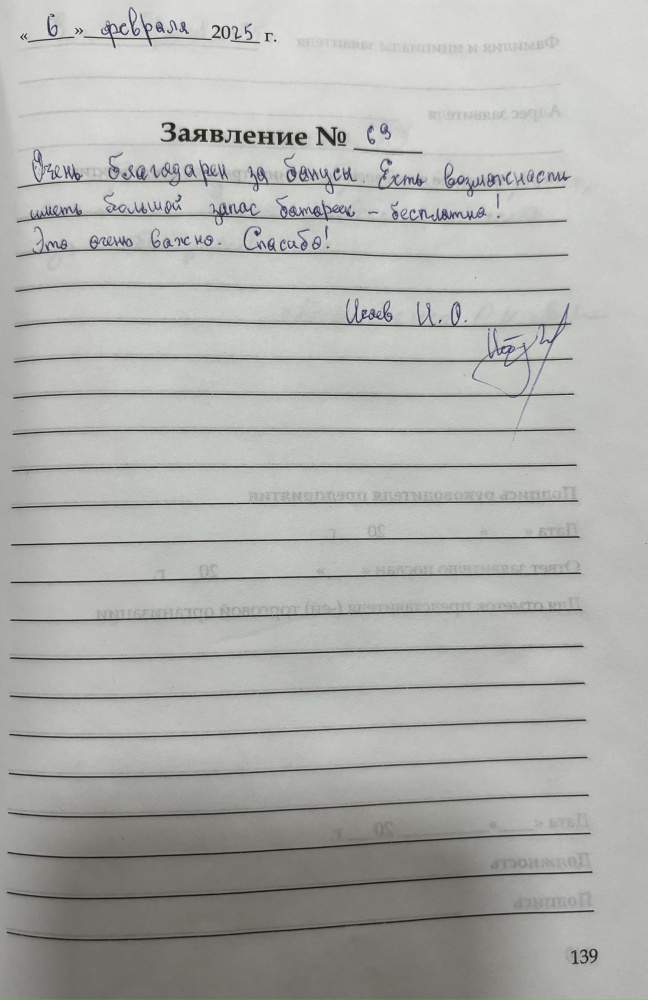 « 6 » февраля 2025 г.
Заявление № 69
Очень благодарен за бонусы. Есть возможность
иметь большой запас батареек – бесплатно!
Это очень важно. Спасибо!
И. О.
139